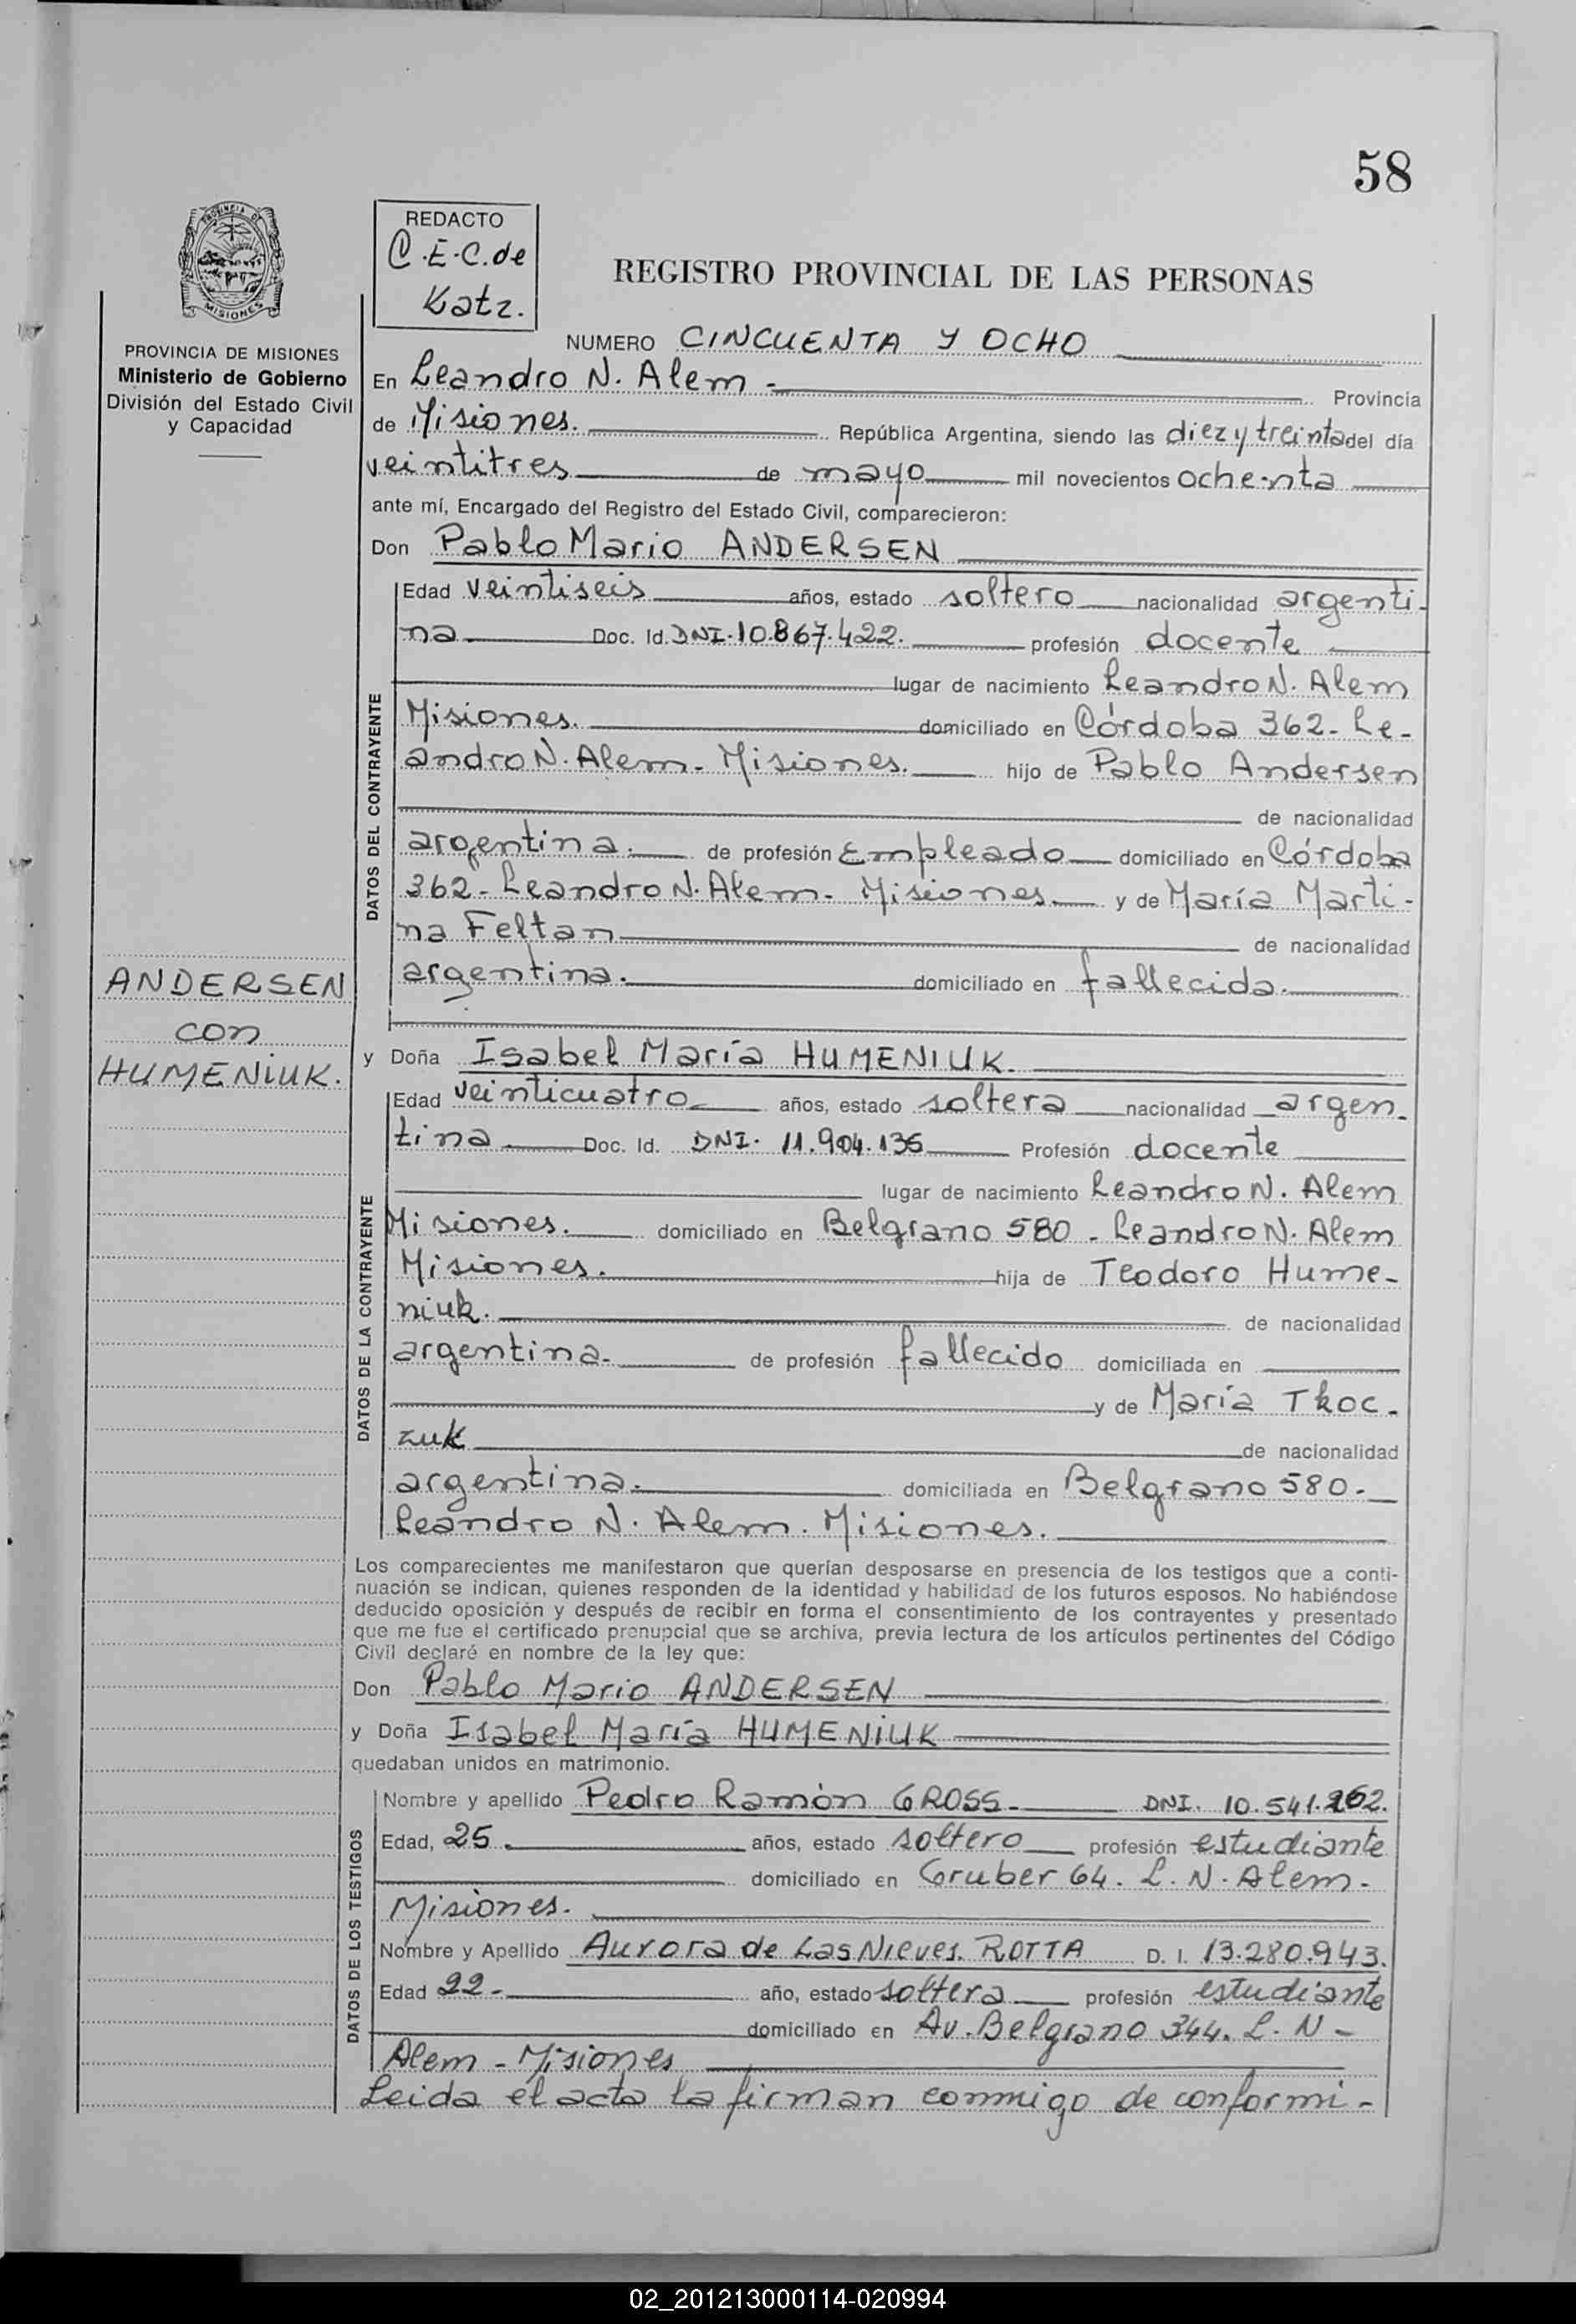 58
REDACTO
C.E.C. de
Katz.
REGISTRO PROVINCIAL DE LAS PERSONAS
PROVINCIA DE MISIONES
Ministerio de Gobierno
División del Estado Civil
y Capacidad
NUMERO CINCUENTA Y OCHO
En Leandro N. Alem - Provincia
de Misiones. República Argentina, siendo las diez y treinta del día
veintitres de mayo mil novecientos ochenta
ante mí, Encargado del Registro del Estado Civil, comparecieron:
Don Pablo Mario ANDERSEN
DATOS DEL CONTRAYENTE
Edad veintiseis años, estado soltero nacionalidad argenti-
na Doc. Id. DNI. 10.867.422. profesión docente
lugar de nacimiento Leandro N. Alem
Misiones. domiciliado en Córdoba 362- Le-
andro N. Alem- Misiones. hijo de Pablo Andersen
de nacionalidad
argentina. de profesión Empleado domiciliado en Córdoba
362- Leandro N. Alem- Misiones. y de María Marti-
na Feltan de nacionalidad
argentina. domiciliado en fallecida.
ANDERSEN
con
HUMENIUK.
y Doña Isabel María HUMENIUK.
DATOS DE LA CONTRAYENTE
Edad veinticuatro años, estado soltera nacionalidad argen-
tina Doc. Id. DNI. 11.904.136 Profesión docente
lugar de nacimiento Leandro N. Alem
Misiones. domiciliado en Belgrano 580 - Leandro N. Alem
Misiones. hija de Teodoro Hume-
niuk. de nacionalidad
argentina. de profesión fallecido domiciliada en
y de María Tkoc-
zuk de nacionalidad
argentina. domiciliada en Belgrano 580.-
Leandro N. Alem. Misiones.
Los comparecientes me manifestaron que querían desposarse en presencia de los testigos que a conti-
nuación se indican, quienes responden de la identidad y habilidad de los futuros esposos. No habiéndose
deducido oposición y después de recibir en forma el consentimiento de los contrayentes y presentado
que me fue el certificado prenupcial que se archiva, previa lectura de los artículos pertinentes del Código
Civil declaré en nombre de la ley que:
Don Pablo Mario ANDERSEN
y Doña Isabel María HUMENIUK
quedaban unidos en matrimonio.
DATOS DE LOS TESTIGOS
Nombre y apellido Pedro Ramón GROSS- DNI. 10.541.262.
Edad, 25. años, estado soltero profesión estudiante
domiciliado en Gruber 64. L. N. Alem.
Misiones.
Nombre y Apellido Aurora de Las Nieves. ROTTA D. I. 13.280.943.
Edad 22- año, estado soltera profesión estudiante
domiciliado en Av. Belgrano 344. L. N-
Alem - Misiones
Leida el acta la firman conmigo de conformi-
02_201213000114-020994